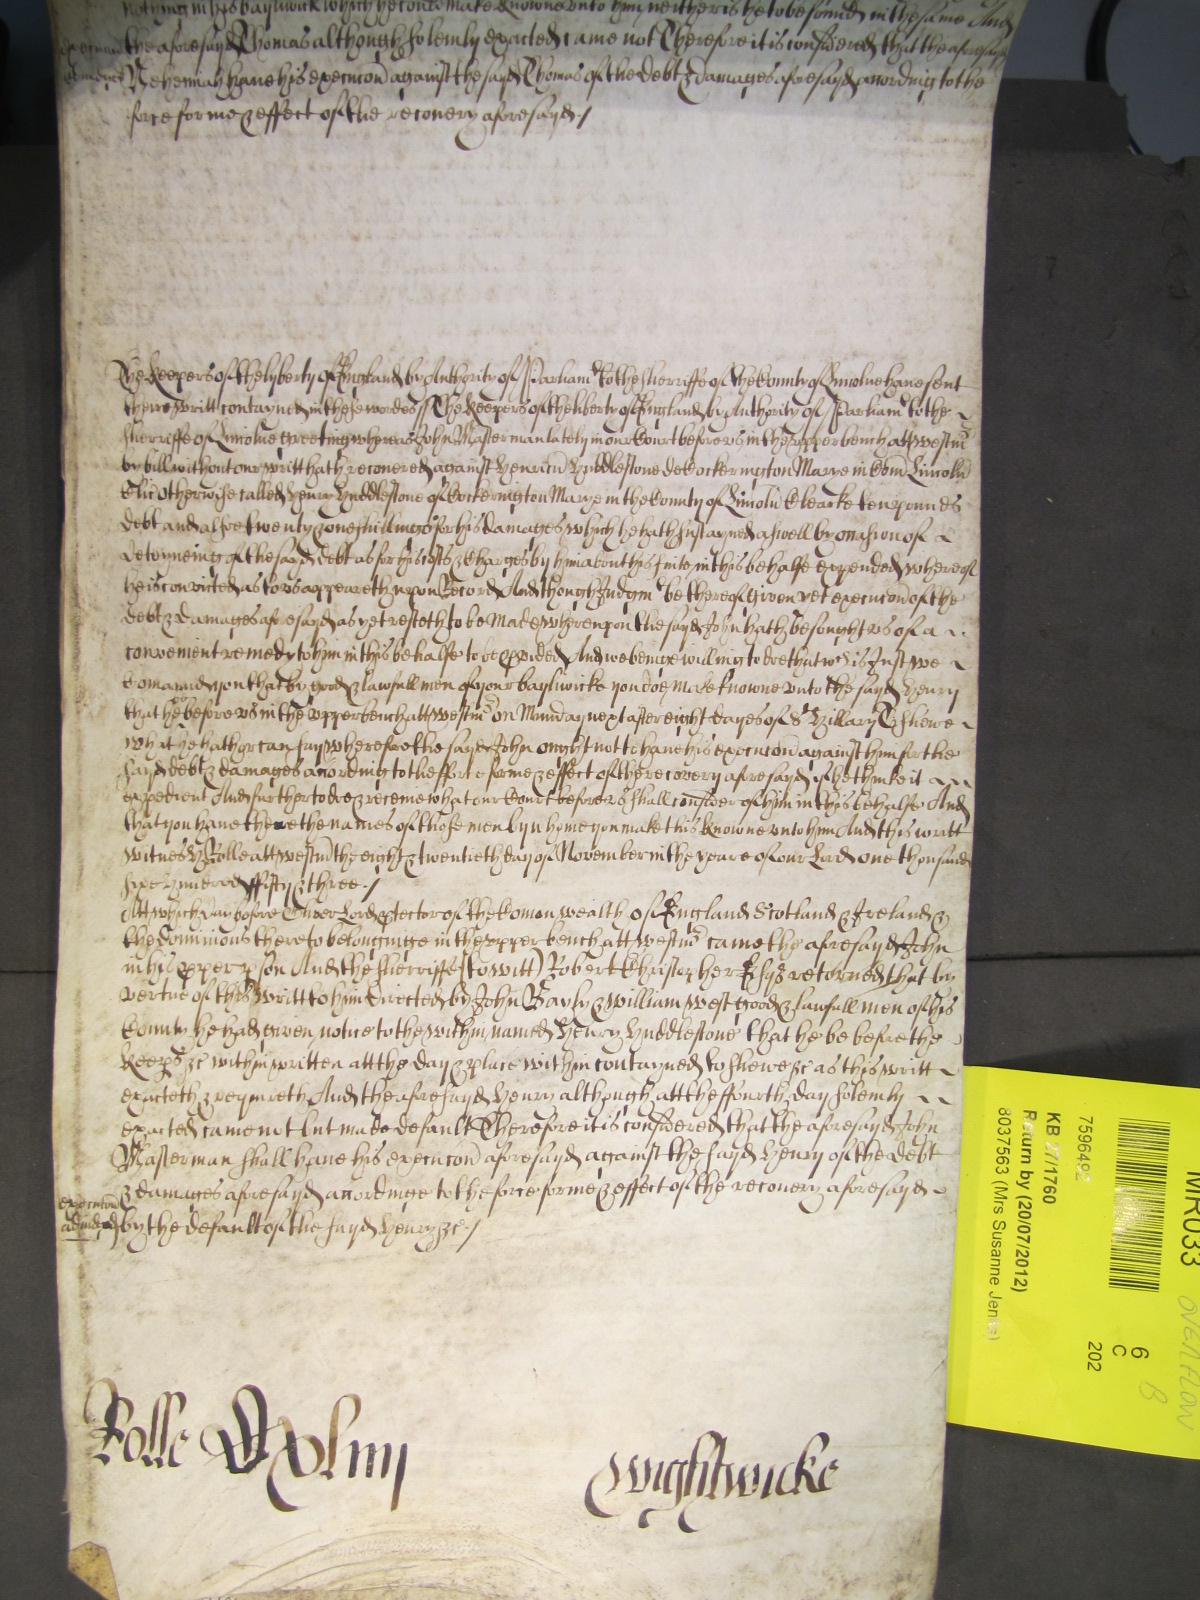 nothing in his baylwick which he could make knowne unto him neither is he to be found in the same And
the aforesayd Thomas although solemly exacted came not Therefore it is considered that the aforesayd
Nehemiah have his execucon against the sayd Thomas of the debt & damages aforesayd according to the
force forme & effect of the recovery aforesayd /
The Keepers of the liberty of England by Authority of Parliamt to the sherriffe of the County of Lincolne have sent
their writt contayned in these wordes The Keepers of the liberty of England by Authority of Parliamt to the
sherriffe of Lincolne greeting whereas John Masterman lately in our Court before us in the upper bench att westmr
by bill without our writt hath recovered against Henricu Huddlestone de Cockerington Marye in Com Lincoln
Clic otherwise called Henry Huddlestone of Cockerington Marye in the County of Lincoln Clearke ten pounds
debt and alsoe twenty & one shillings for his damages which he hath sustayned aswell by occasion of
detayneing of the sayd debt as for his costs & charges by him about his suite in this behalfe expended whereof
he is convicted as to us appeareth upon Record And though Judgmt be thereof given yet execucon of the
debt & damages aforesayd as yet resteth to be made whereupon the sayd John hath besought us of a
convenient remedy to him in this behalfe to be pvided And we beinge willing to doe that wch is Just we
comaund you that by good & lawfull men of your bayliwicke you doe make knowne unto the sayd Henry
that he be before us in the upper bench att westmr on Munday next after eight dayes of St Hillary To shewe
what he hath or can say wherefore the sayd John ought not to have his execucon against him for the
sayd debt & damages according to the force forme & effect of the recovery aforesayd if he thinke it
expedient And further to doe & receive what our Court before us shall consider of him in this behalfe And
that you have there the names of those men by whome you make this knowne unto him And this writt
witnes H Rolle att westmr the eight & twentieth day of November in the yeare of our Lord one thousand
sixe hundred fifty & three /
Att which day before Oliver Lord ptector of the Comon wealth of England Scotland & Ireland &
the dominions thereto belonginge in the upper bench att westmr came the aforesayd John
in his pper pson And the sherriffe (to witt) Robert Christopher Esqr retorned that by
vertue of this writt to him directed by John Bayly & William West good & lawfull men of his
County he had given notice to the within named Henry Huddlestone that he be before the
Keepers &c within written att the day & place within contayned to shewe &c as this writt
exacteth & requireth And the aforesayd Henry although att the ffourth day solemly
exacted came not but made default Therefore it is considered that the aforesayd John
Masterman shall have his execucon aforesayd against the sayd Henry of the debt
& damages aforesayd accordinge to the force forme & effect of the recovery aforesayd
execucon
adiudged
by the default of the sayd Henry &c /
Rolle
Wightwicke
MR033
OVERFLOW
7596492
KB 27/1760
Return by (20/07/2012)
8037563 (Mrs Susanne Jenks)
6
C
202
B